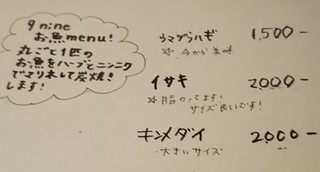 9 nine
お魚menu!
丸ごと1匹の
お魚をハーブとニンニク
でマリネして炭焼き
します!
ウマヅラハギ 1,500-
☆今から美味
イサキ 2000-
☆脂のってます!
サイズ良いです!
キンメダイ 2000-
大きいサイズ